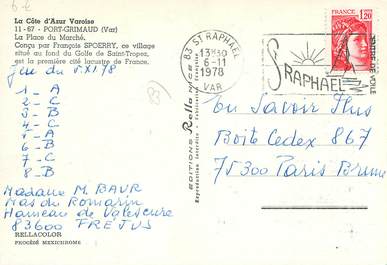 6 €
La Côte d'Azur Varoise
11-67 - PORT-GRIMAUD (Var)
La Place du Marché.
Conçu par François SPOERRY, ce village
situé au fond du Golfe de Saint-Tropez,
est la première cité lacustre de France.
Jeu du 5.XI 78
1 - A
2 - C
3 - B
4 - C
5 - A
6 - B
7 - C
8 - B
Madame M. BAUR
Mas du Romarin
Hameau de Valescure
83600 FREJUS
RELLACOLOR
PROCÉDÉ MEXICHROME
83
EDITIONS Rella NICE
Reproduction interdite - Fabrication Française
83 ST RAPHAEL
13H30
6-11
1978
VAR
ST RAPHAEL
DE VOILE
1,20
Ou Savoir Plus
Boite Cedex 867
75300 Paris Brune